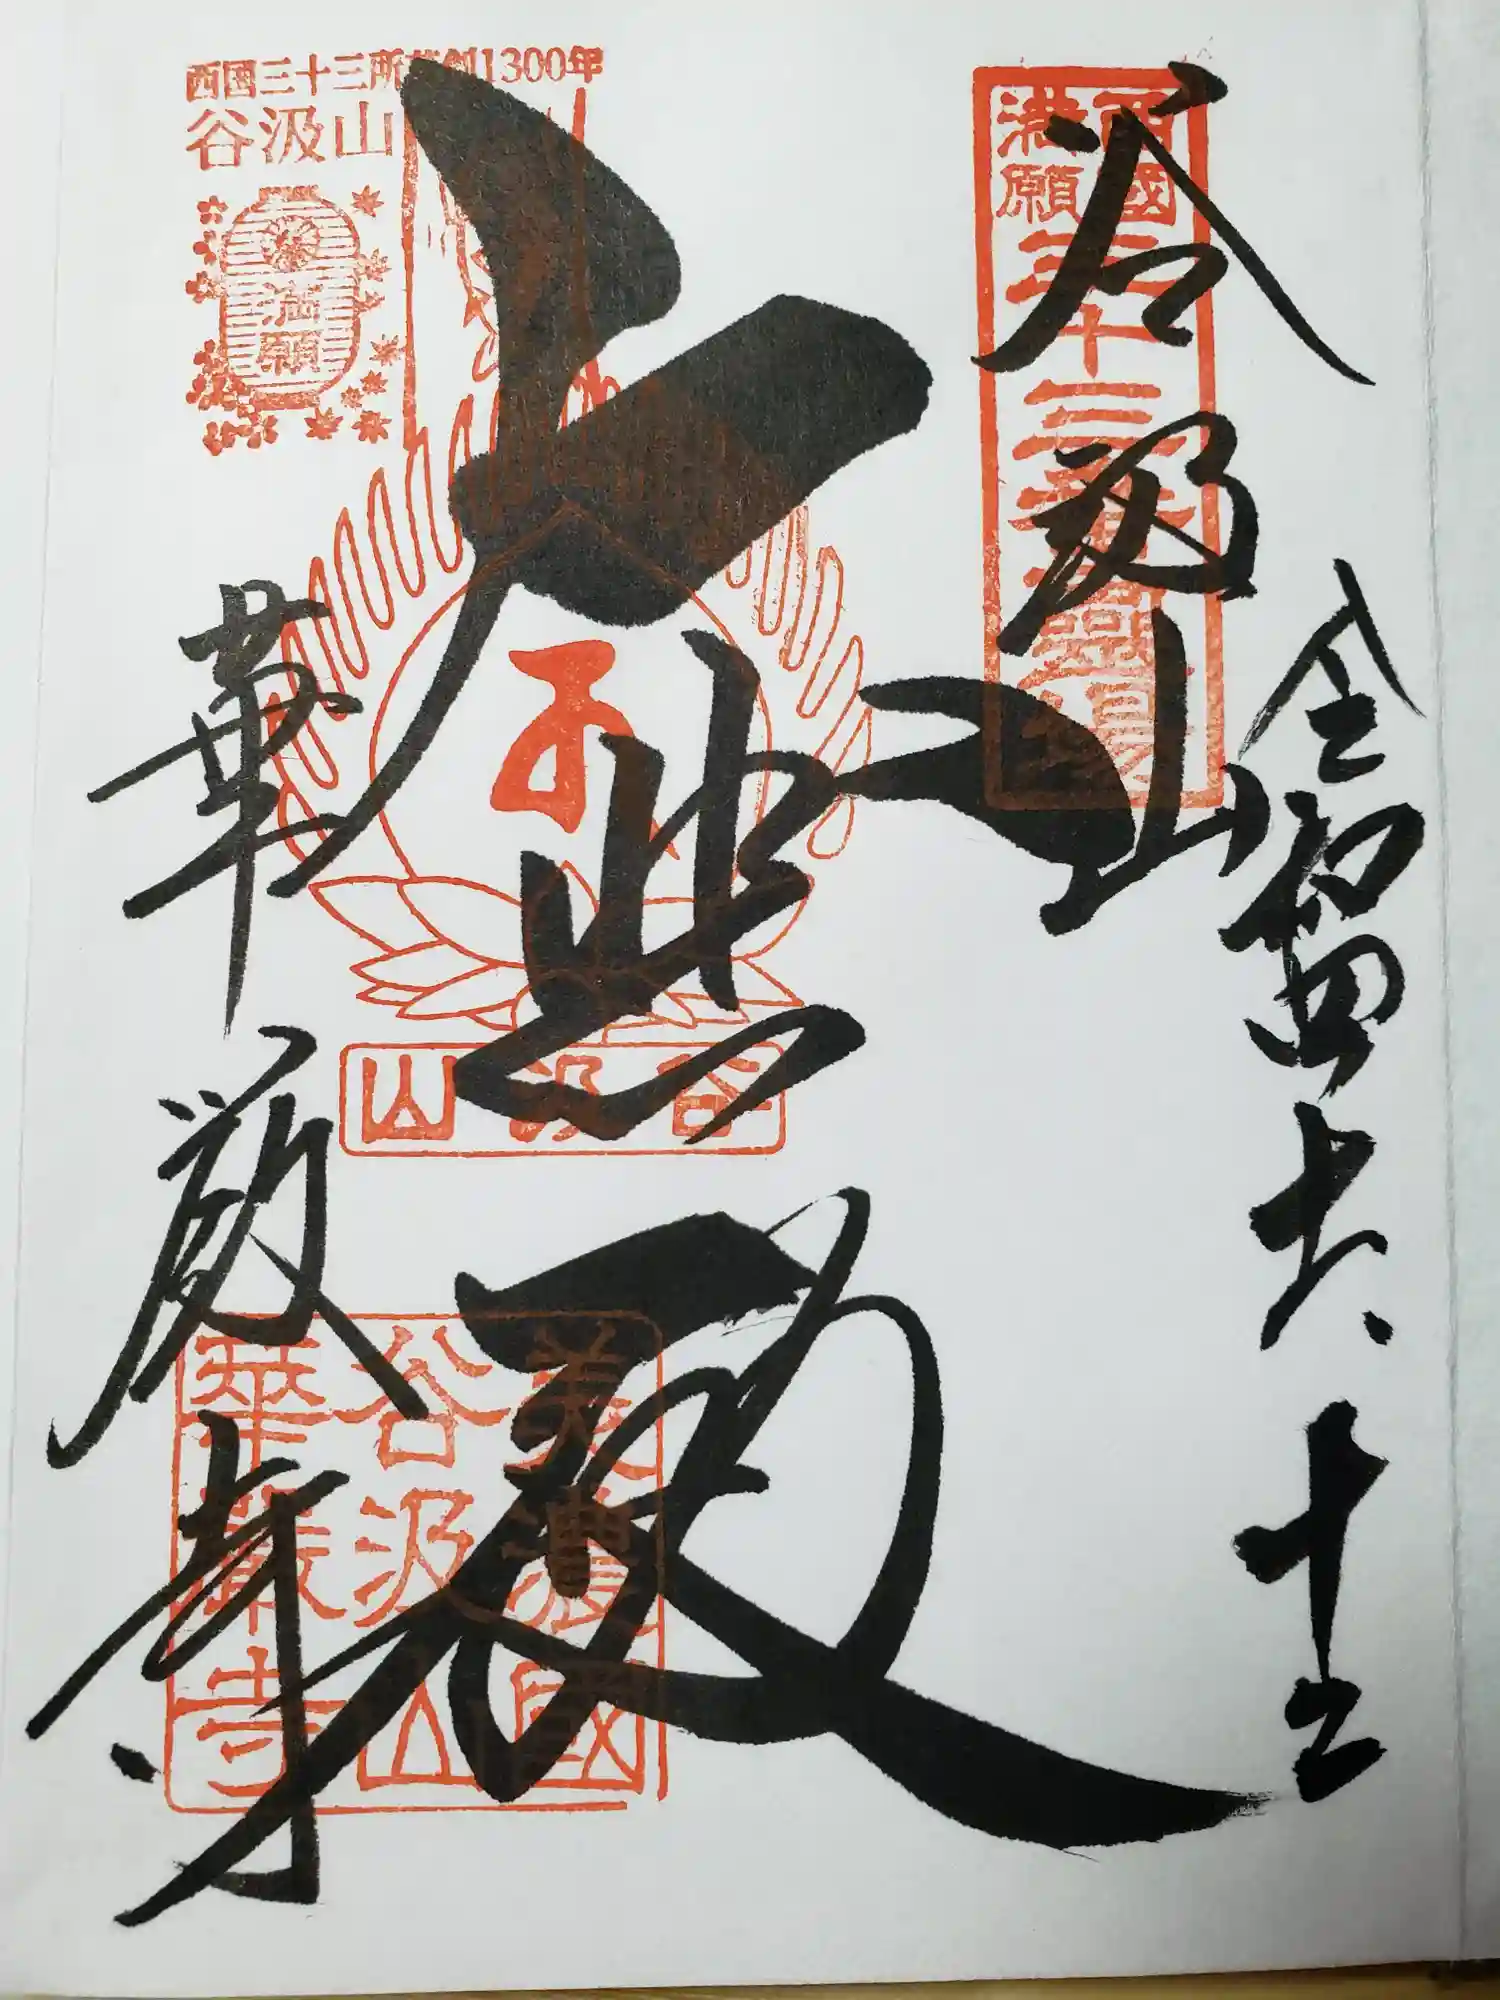 西国三十三所草創1300年
谷汲山
満願
西國
満願
三十三番霊場
谷汲山
令和四
大悲殿
谷汲山
華厳寺
美濃國
谷汲山
華嚴寺